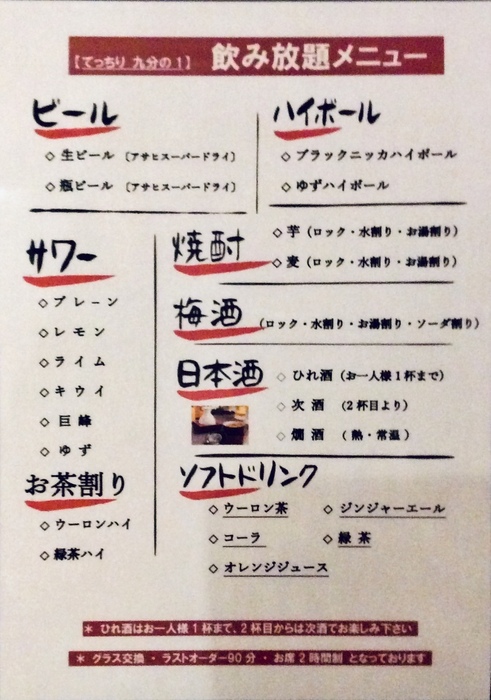 【てっちり 九分の1】 飲み放題メニュー
ビール
◇ 生ビール 〔アサヒスーパードライ〕
◇ 瓶ビール 〔アサヒスーパードライ〕
ハイボール
◇ ブラックニッカハイボール
◇ ゆずハイボール
サワー
◇ プレーン
◇ レモン
◇ ライム
◇ キウイ
◇ 巨峰
◇ ゆず
お茶割り
◇ ウーロンハイ
◇ 緑茶ハイ
焼酎
◇ 芋 (ロック・水割り・お湯割り)
◇ 麦 (ロック・水割り・お湯割り)
梅酒 (ロック・水割り・お湯割り・ソーダ割り)
日本酒
◇ ひれ酒 (お一人様1杯まで)
◇ 次酒 (2杯目より)
◇ 燗酒 (熱・常温)
ソフトドリンク
◇ ウーロン茶 ◇ ジンジャーエール
◇ コーラ ◇ 緑茶
◇ オレンジジュース
＊ ひれ酒はお一人様1杯まで、2杯目からは次酒でお楽しみ下さい
＊ グラス交換 ・ ラストオーダー90分 ・ お席2時間制 となっております